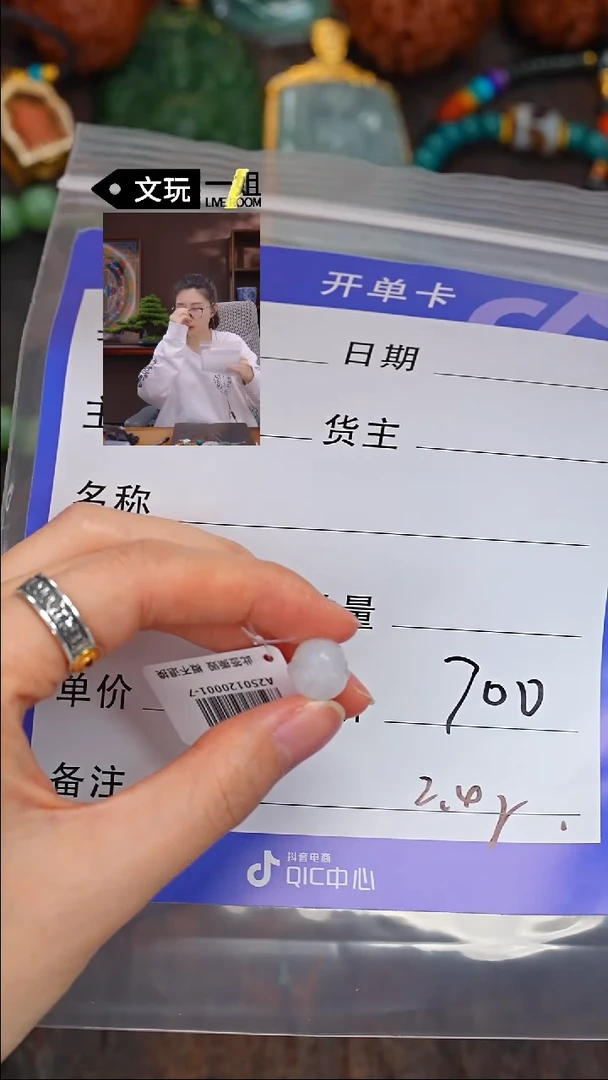 文玩一姐
LIVE ROOM
开单卡
日期
货主
名称
量
单价
700
备注
2.4g.
此签撕毁 概不退换
A250120001-7
抖音电商
QIC中心